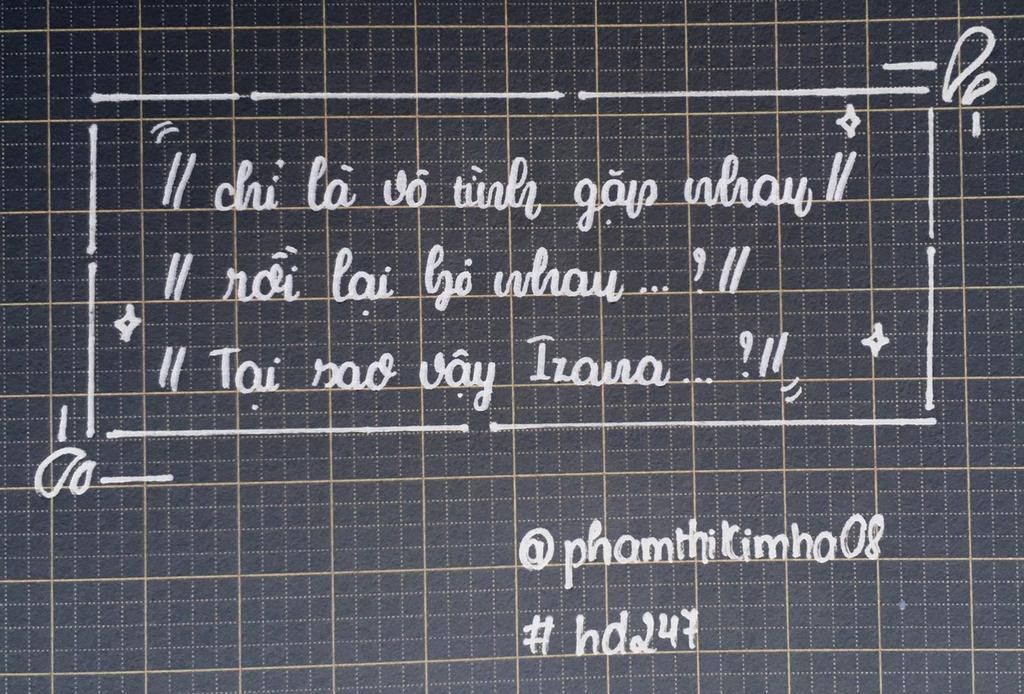 // chỉ là vô tình gặp nhau //
// rồi lại bỏ nhau ... ? //
// Tại sao vậy Izana ... ? //
@phamthikimha08
# hd247